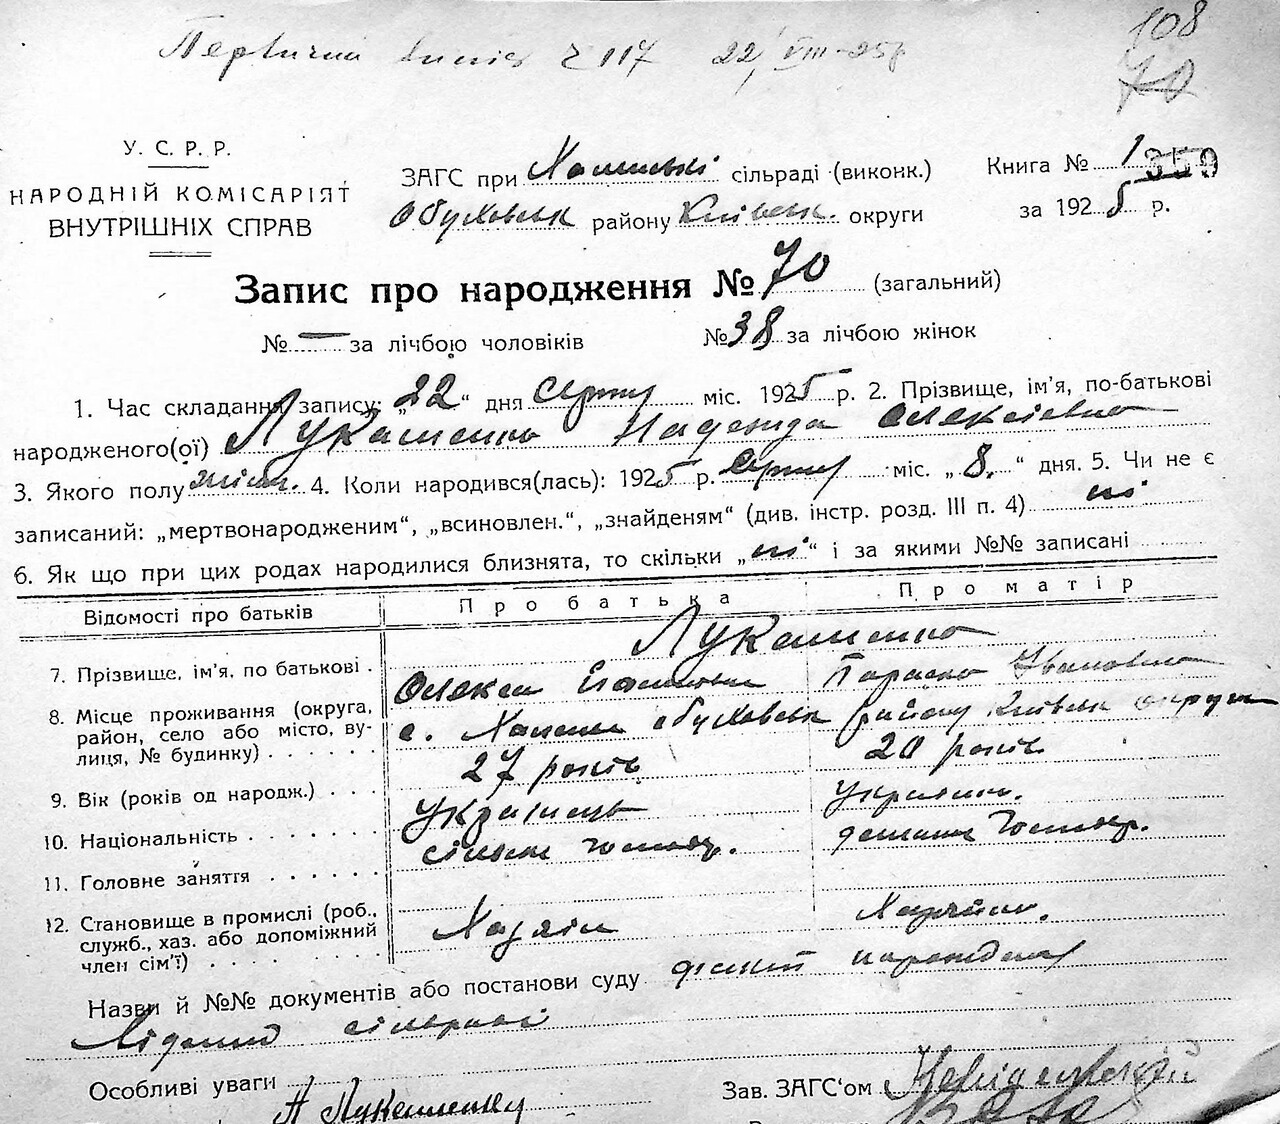 108
Первичний випис ч 117 22/VIII-25р
70
У. С. Р. Р.
НАРОДНІЙ КОМІСАРІЯТ
ВНУТРІШНІХ СПРАВ
ЗАГС при сільраді (виконк.)
Обуховськ району Київськ. округи
Книга № 1 359
за 1925 р.
Запис про народження № 70 (загальний)
№ — за лічбою чоловіків № 38 за лічбою жінок
1. Час складання запису: „22“ дня серпня міс. 1925 р. 2. Прізвище, ім’я, по-батькові
народженого(ої) Лукашенко Надежда Олексіевна
3. Якого полу жіноч. 4. Коли народився(лась): 1925 р. серпня міс. „8.“ дня. 5. Чи не є
записаний: „мертвонародженим“, „всиновлен.“, „знайденям“ (див. інстр. розд. III п. 4) ні
6. Як що при цих родах народилися близнята, то скільки „ні“ і за якими №№ записані
Відомості про батьків Про батька Про матір
Лукашенко
7. Прізвище, ім’я, по батькові . Олекса Параска Ивановна
8. Місце проживання (округа,
район, село або місто, ву-
лиця, № будинку) с. Обуховськ району Київськ округи
9. Вік (років од народж.) 27 років 20 років
10. Національність Українець Українк.
11. Головне заняття сільськ господ. домашн господ.
12. Становище в промислі (роб.,
служб., хаз. або допоміжний
член сім’ї) Хазяїн
Назви й №№ документів або постанови суду
сільради
Особливі уваги
Зав. ЗАГС’ом
А Лукашенко